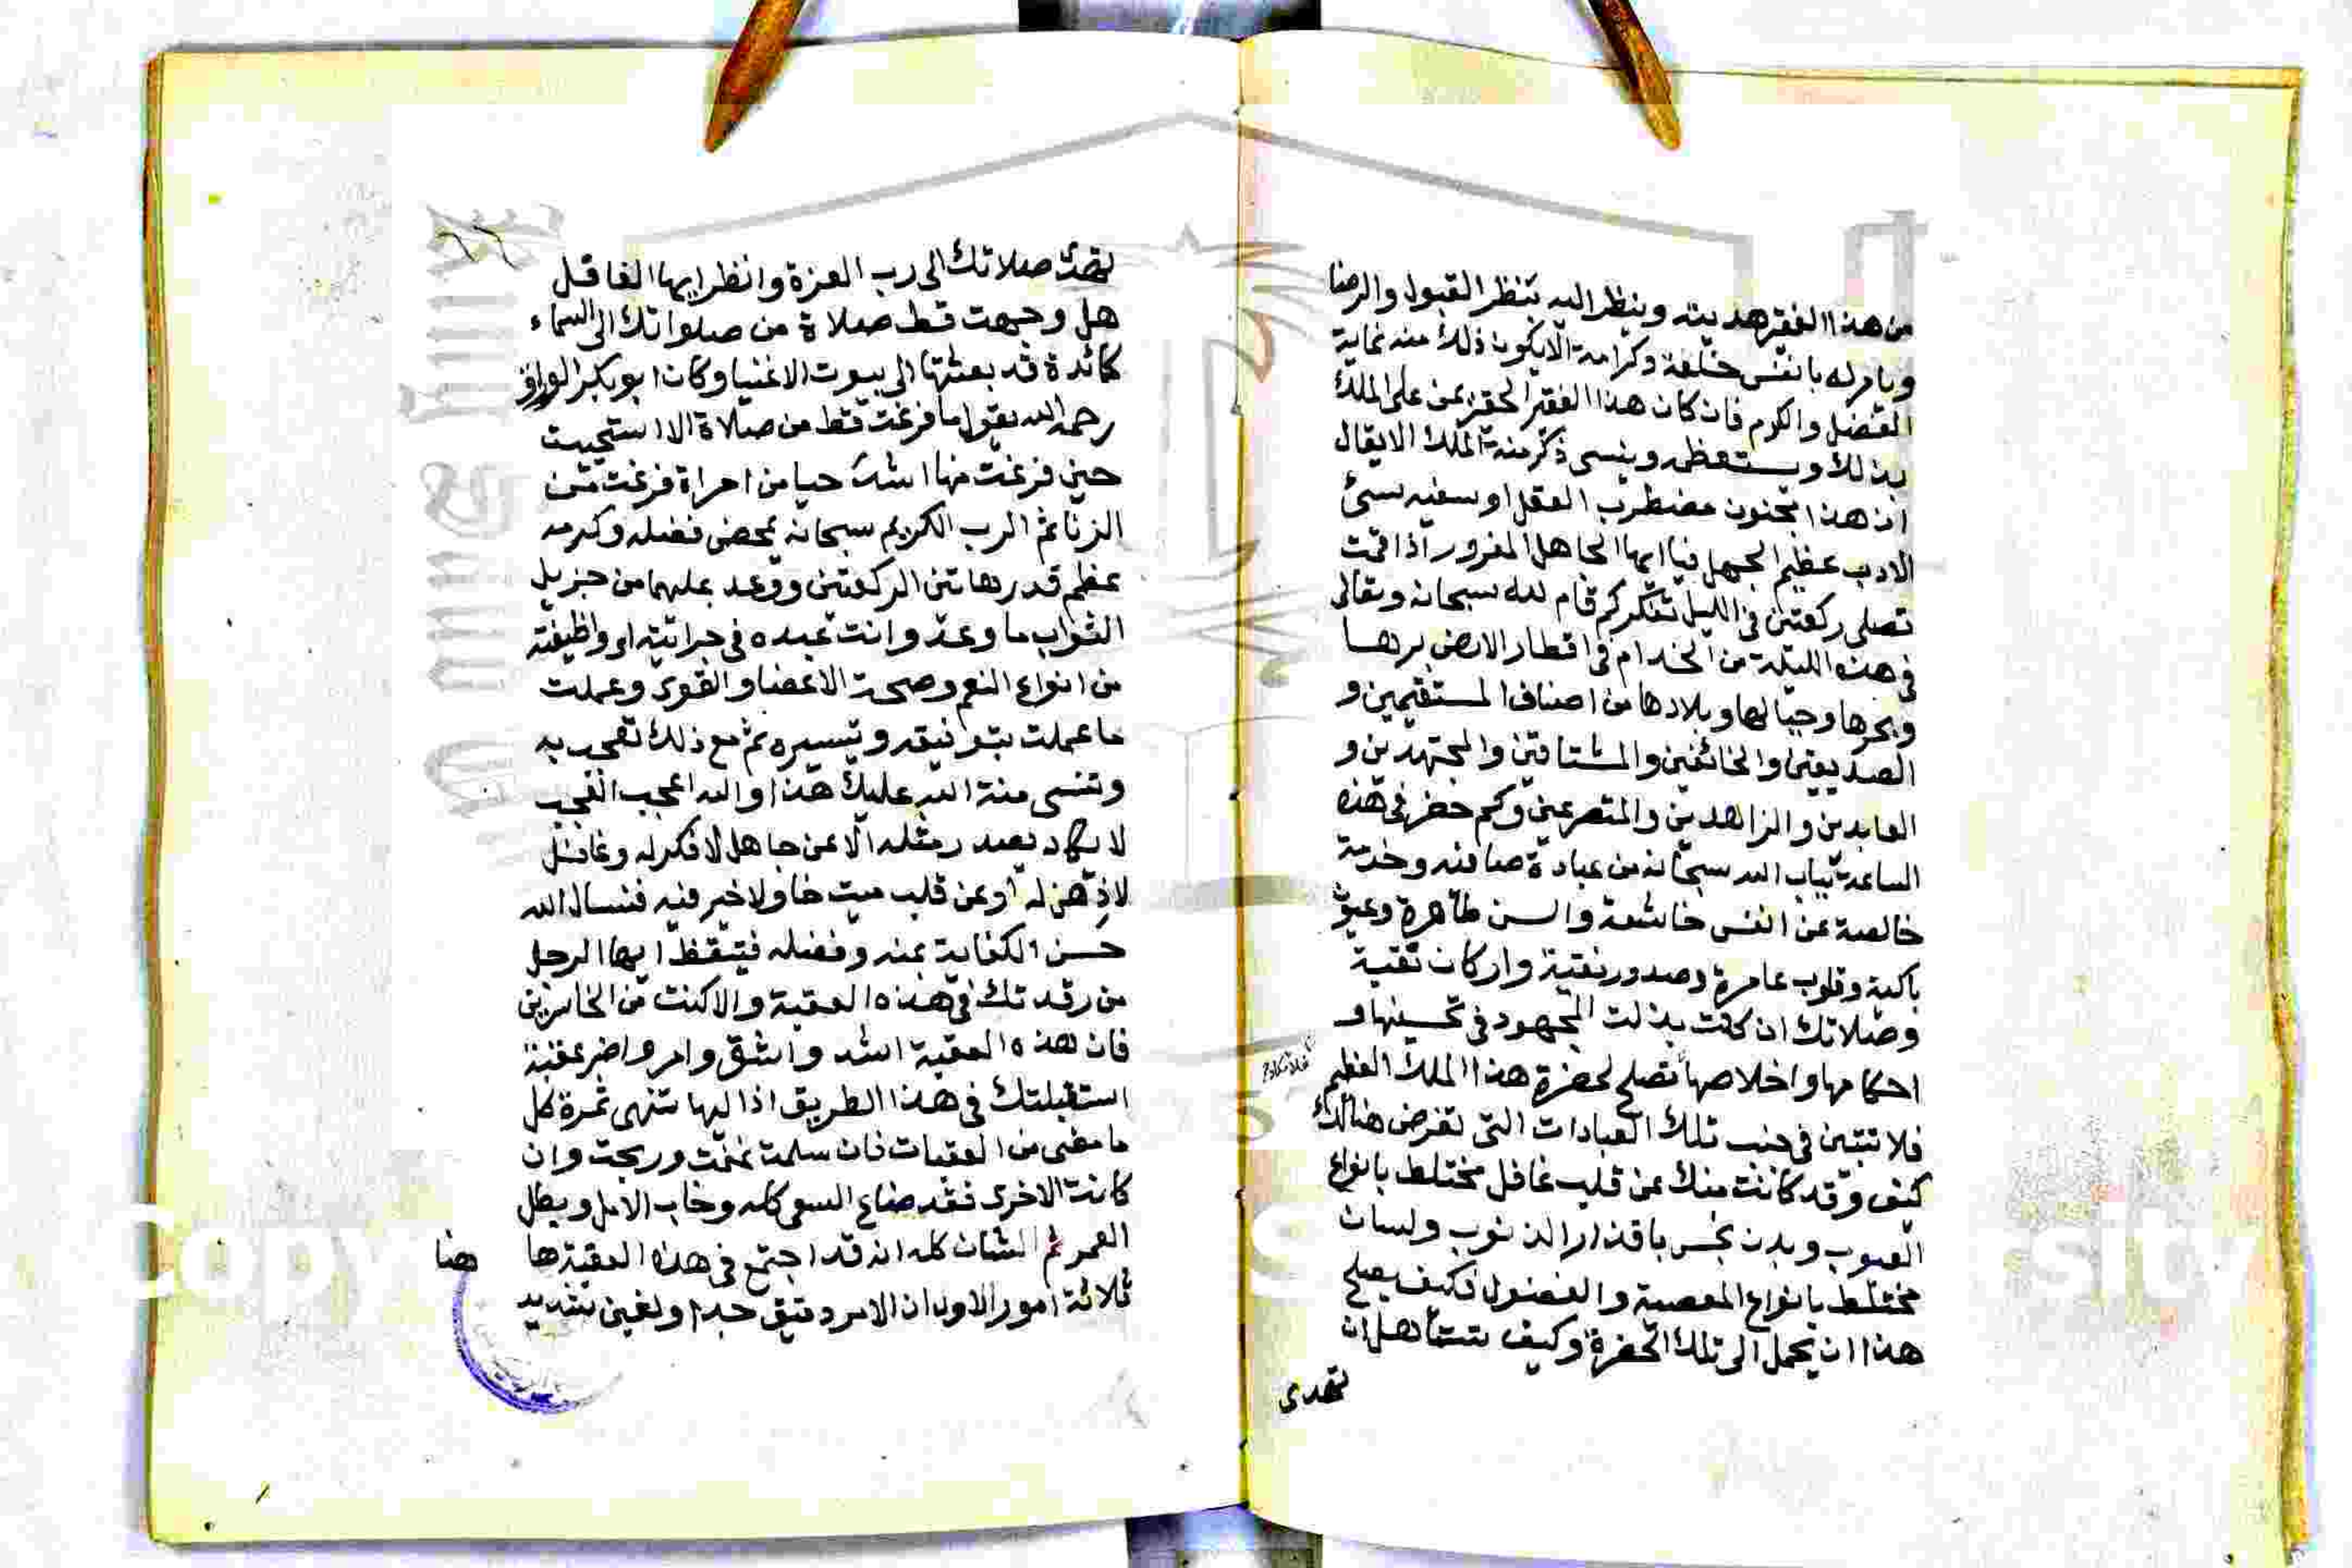 من هذا الفقير هديته وينظر اليه بنظر القبول والرضا
ويامر له بانفس خلعة وكرامة الا يكون ذلك منه غاية
الفضل والكرم فان كان هذا الفقير الحقير يمن على الملك
بذلك ويستعظمه وينسى ذكر منة الملك الا يقال
ان هذا مجنون مضطرب العقل او سفيه سئ
الادب عظيم الجهل فيا ايها الجاهل المغرور اذا قمت
تصلى ركعتين فى الليل تفكر كم قام لله سبحانه وتعالى
فى هذه الليلة من الخدام فى اقطار الارض برها
وبحرها وجبالها وبلادها من اصناف المستقيمين و
الصديقين والخائفين والمشتاقين والمجتهدين و
العابدين والزاهدين والمتضرعين وكم حضر فى هذه
الساعة بباب الله سبحانه من عبادة صافية وخدمة
خالصة عن انفس خاشعة والسن طاهرة وعيون
باكية وقلوب عامرة وصدور نقية واركان تقية
وصلاتك ان كنت بذلت المجهود فى تحسينها و
احكامها واخلاصها تصلح لحضرة هذا الملك العظيم
فلا تتبين فى جنب تلك العبادات التى تعرض هنالك
كيف وقد كانت منك عن قلب غافل مختلط بانواع
العيوب وبدن نجس باقذار الذنوب ولسان
مختلط بانواع المعصية والفضول فكيف يصلح
هذا ان يحمل الى تلك الحضرة وكيف تستأهل ان
تهدى
تهدى صلاتك الى رب العزة وانظر ايها الغافل
هل وجهت قط صلاة من صلواتك الى السماء
كمائدة قد بعثتها الى بيوت الاغنيا وكان ابو بكر الوراق
رحمه الله يقول ما فرغت قط من صلاة الا استحييت
حين فرغت منها اشد حيا من امراة فرغت من
الزنا ثم الرب الكريم سبحانه بمحض فضله وكرمه
عظم قدر هاتين الركعتين ووعد عليهما من جزيل
الثواب ما وعد وانت عبده فى جرايته او وظيفته
من انواع النعم وصحة الاعضا والقوى وعملت
ما عملت بتوفيقه وتيسيره ثم مع ذلك تعجب به
وتنسى منة الله عليك هذا والله اعجب العجب
لا يكاد يصدر مثله الا عن جاهل لا فكر له وغافل
لا ذهن له او عن قلب ميت خاو لا خير فيه فنسال الله
حسن الكفاية بمنه وفضله فتيقظ ايها الرجل
من رقدتك فى هذه العقبة والا كنت من الخاسرين
فان هذه العقبة اشد واشق وامر واضر عقبة
استقبلتك فى هذا الطريق اذا اليها تنتهى ثمرة كل
ما مضى من العقبات فان سلمت غنمت وربحت وان
كانت الاخرى فقد ضاع السعى كله وخاب الامل وبطل
العمر ثم الشان كله انه قد اجتمع فى هذه العقبة ها هنا
ثلاثة امور الاول ان الامر دقيق جدا والغبن شديد
Copy
sity